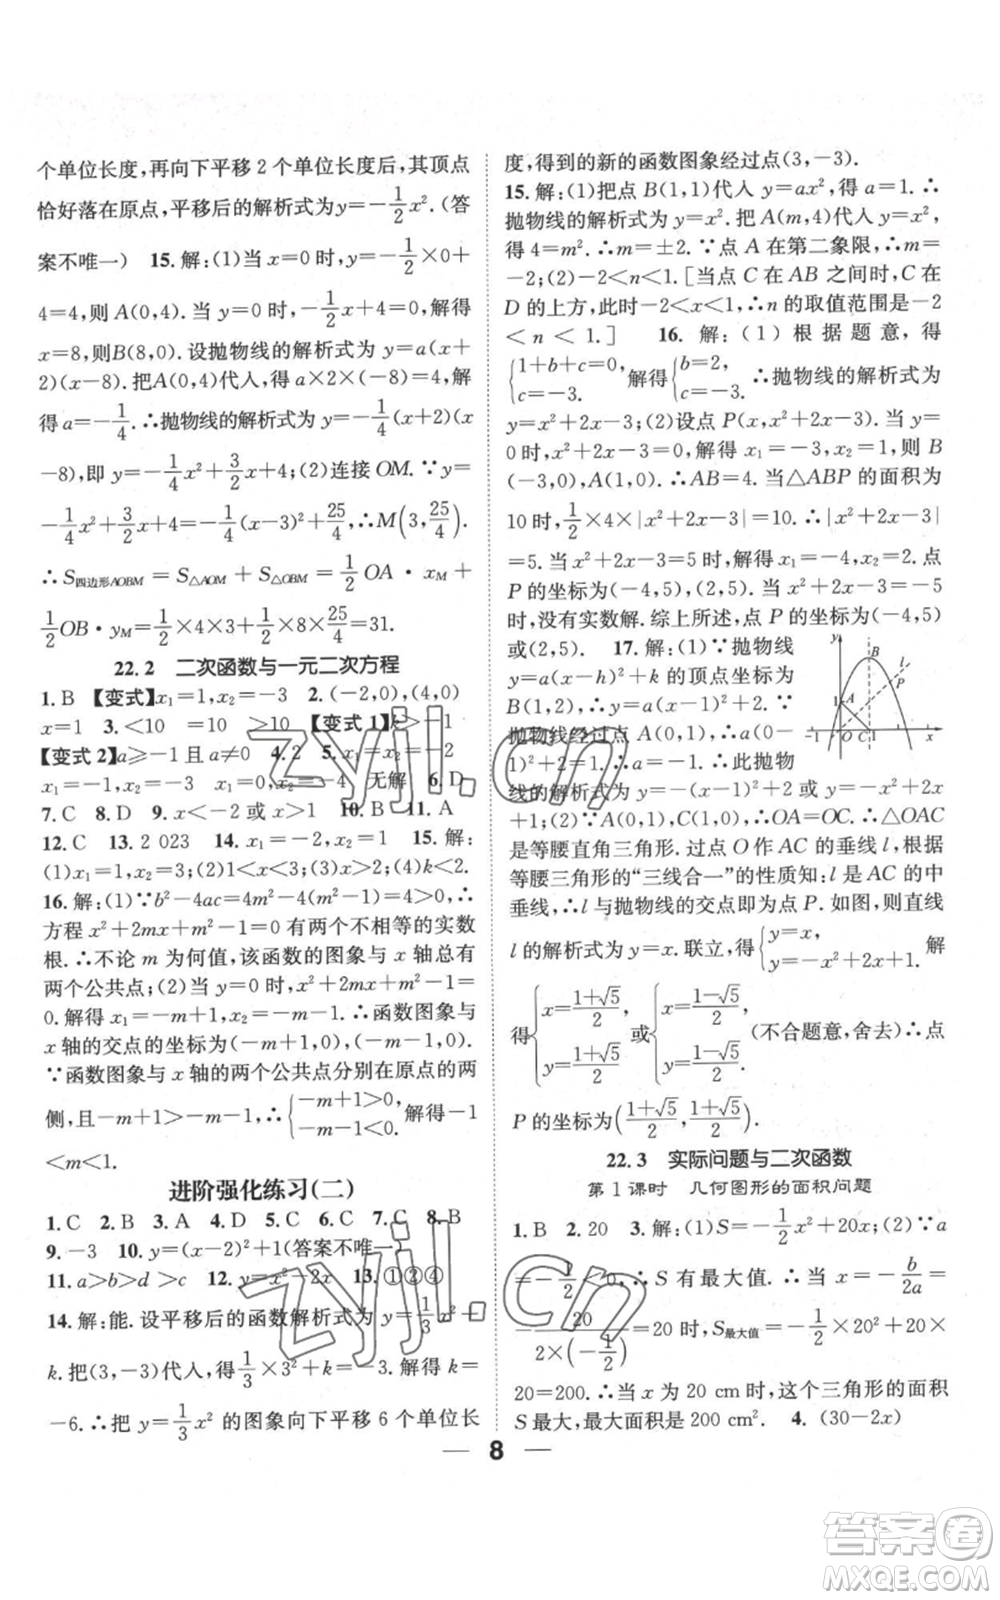 个单位长度，再向下平移 2 个单位长度后，其顶点
恰好落在原点，平移后的解析式为y=-1/2x².(答
案不唯一) 15.解:(1)当 x=0时，y=-1/2×0+
4=4，则 A(0,4). 当 y=0 时，-1/2x+4=0，解得
x=8，则B(8,0). 设抛物线的解析式为 y=a(x+
2)(x-8). 把A(0,4)代人，得 a×2×(-8)=4，解
得 a=-1/4. ∴抛物线的解析式为 y=-1/4(x+2)(x
-8)，即 y=-1/4x²+3/2x+4;(2)连接 OM. ∵y=
-1/4x²+3/2x+4=-1/4(x-3)²+25/4，∴M(3,25/4).
∴ S四边形AOBM = S△AOM + S△OBM = 1/2 OA · xM +
1/2OB·yM=1/2×4×3+1/2×8×25/4=31.
22.2 二次函数与一元二次方程
1. B 【变式】x₁=1,x₂=-3 2. (-2,0),(4,0)
x=1 3. <10 =10 >10 【变式 1】k>-1
【变式 2】a≥-1 且 a≠0 4. 2 5. x₁=x₂=-2
x₁=-1,x₂=-3 x₁=0,x₂=-4 无解 6. D
7. C 8. D 9. x<-2 或 x>1 10. B 11. A
12. C 13. 2 023 14. x₁=-2,x₂=1 15. 解:
(1)x₁=1,x₂=3;(2)1<x<3;(3)x>2;(4)k<2.
16. 解:(1)∵b²-4ac=4m²-4(m²-1)=4>0,∴
方程 x²+2mx+m²-1=0 有两个不相等的实数
根. ∴不论 m 为何值，该函数的图象与 x 轴总有
两个公共点;(2)当 y=0 时，x²+2mx+m²-1=
0. 解得 x₁=-m+1,x₂=-m-1. ∴函数图象与
x 轴的交点的坐标为(-m+1,0),(-m-1,0).
∵函数图象与 x 轴的两个公共点分别在原点的两
侧，且-m+1>-m-1,∴{-m+1>0, -m-1<0. 解得-1
<m<1.
进阶强化练习(二)
1. C 2. B 3. A 4. D 5. C 6. C 7. C 8. B
9. -3 10. y=(x-2)²+1(答案不唯一)
11. a>b>d>c 12. y=x²-2x 13. ①②④
14. 解:能. 设平移后的函数解析式为 y=1/3x²+
k. 把(3,-3)代人，得1/3×3²+k=-3. 解得 k=
-6. ∴把 y=1/3x² 的图象向下平移 6 个单位长
度，得到的新的函数图象经过点(3,-3).
15. 解:(1)把点 B(1,1)代人 y=ax²，得 a=1. ∴
抛物线的解析式为 y=x². 把 A(m,4)代人 y=x²，
得 4=m². ∴m=±2. ∵点 A 在第二象限，∴m=
-2;(2)-2<n<1. [当点 C 在 AB 之间时，C 在
D 的上方，此时-2<x<1,∴n 的取值范围是-2
<n<1.] 16. 解:(1)根据题意，得
{1+b+c=0, c=-3. 解得{b=2, c=-3. ∴抛物线的解析式为
y=x²+2x-3;(2)设点 P(x,x²+2x-3). 当 y=
0时，x²+2x-3=0，解得 x₁=-3,x₂=1. 则 B
(-3,0),A(1,0). ∴AB=4. 当△ABP 的面积为
10 时，1/2×4×|x²+2x-3|=10. ∴|x²+2x-3|
=5. 当 x²+2x-3=5 时，解得 x₁=-4,x₂=2. 点
P 的坐标为(-4,5),(2,5). 当 x²+2x-3=-5
时，没有实数解. 综上所述，点 P 的坐标为(-4,5)
或(2,5). 17. 解:(1)∵抛物线
y=a(x-h)²+k 的顶点坐标为
B(1,2),∴y=a(x-1)²+2. ∵
抛物线经过点 A(0,1),∴a(0-
1)²+2=1. ∴a=-1. ∴此抛物
线的解析式为 y=-(x-1)²+2 或 y=-x²+2x+
1;(2)∵A(0,1),C(1,0),∴OA=OC. ∴△OAC
是等腰直角三角形. 过点 O 作 AC 的垂线 l，根据
等腰三角形的“三线合一”的性质知:l 是 AC 的中
垂线，∴l 与抛物线的交点即为点 P. 如图，则直线
l 的解析式为 y=x. 联立，得{y=x, y=-x²+2x+1. 解
得{x=(1+√5)/2, y=(1+√5)/2 或{x=(1-√5)/2, y=(1-√5)/2 (不合题意，舍去)∴点
P 的坐标为((1+√5)/2,(1+√5)/2).
y B l
A P
-1 O C 1 x
22.3 实际问题与二次函数
第 1 课时 几何图形的面积问题
1. B 2. 20 3. 解:(1)S=-1/2x²+20x;(2)∵a
=-1/2<0,∴S 有最大值. ∴当 x=-b/2a=
-20/(2×(-1/2))=20 时，S最大值=-1/2×20²+20×
20=200. ∴当 x 为 20 cm 时，这个三角形的面积
S 最大，最大面积是 200 cm². 4. (30-2x)
8
zyjl.cn
zyjl.cn
答案卷
MXQE.COM